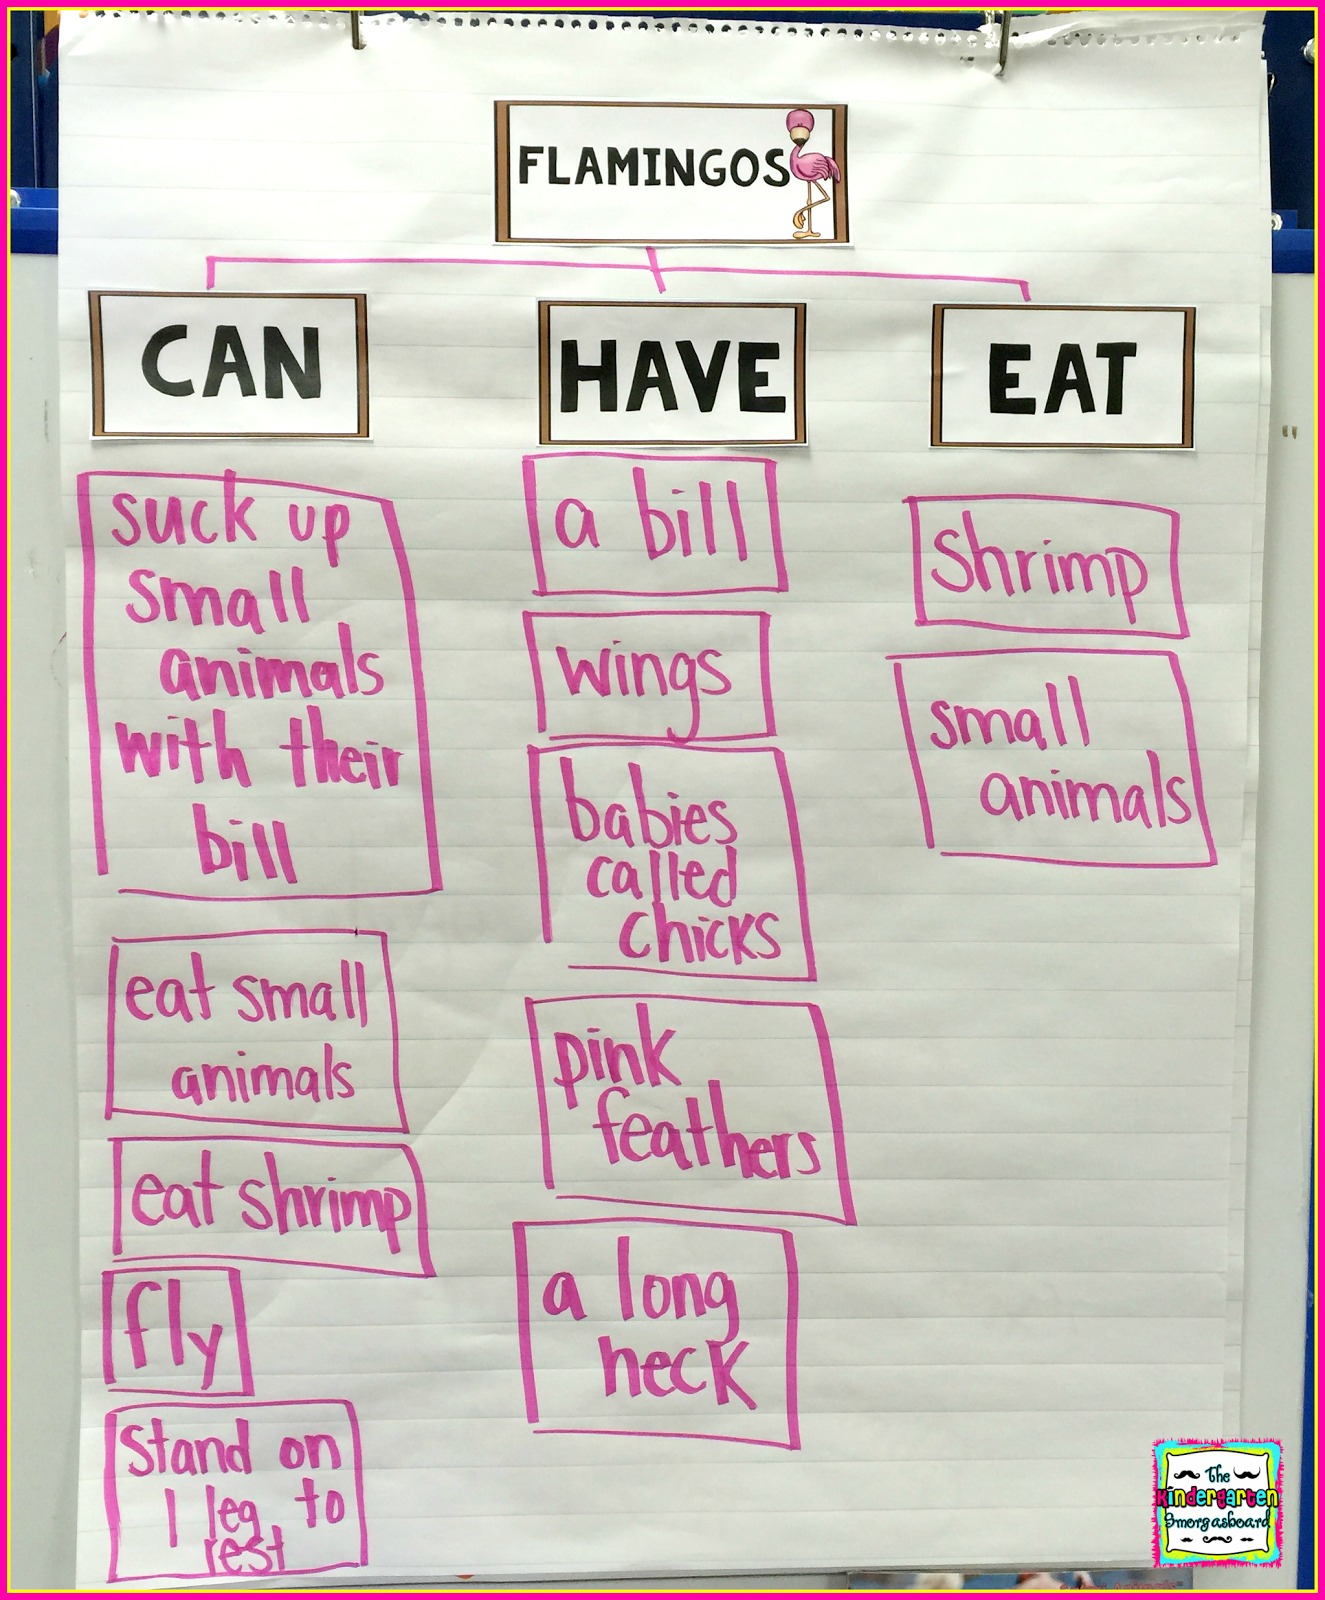 FLAMINGOS
CAN
suck up
small
animals
with their
bill
eat small
animals
eat shrimp
fly
Stand on
1 leg to
rest
HAVE
a bill
wings
babies
called
chicks
pink
feathers
a long
neck
EAT
Shrimp
small
animals
The
Kindergarten
Smorgasboard